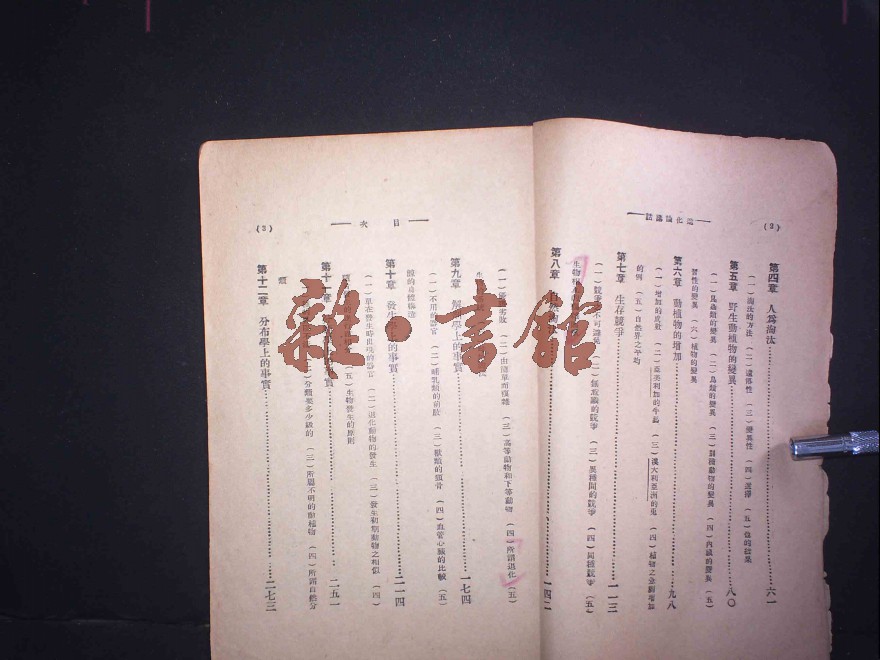 進化論講話
(2)
第四章 人為淘汰……六一
(一)淘汰的方法 (二)遺傳性 (三)變異性 (四)選擇 (五)他的結果
第五章 野生動植物的變異……八〇
(一)昆蟲類的變異 (二)鳥類的變異 (三)別種動物的變異 (四)內臟的變異 (五)
習性的變異 (六)植物的變異
第六章 動植物的增加……九八
(一)增加的成數 (二)亞美利加的牛馬 (三)澳大利亞洲的兎 (四)植物之急劇增加
的例 (五)自然界之平均
第七章 生存競爭……一一三
(一)競爭 不可避免 (二)無意識的競爭 (三)異種間的競爭 (四)同種競爭 (五)
生物
第八章 自然……一四二
(一) 劣敗 (二)由簡單而複雜 (三)高等動物和下等動物 (四)所謂退化 (五)
生
第九章 解 學上的事實……一七四
(一)不用的器官 (二)哺乳類的前肢 (三)獸類的頸骨 (四)血管心臟的比較 (五)
第十章 發生學上的事實……二一四
(一)單在發生時出現的器官 (二)退化動物的發生 (三)發生初期動物之相似 (四)
(五)生物發生的原則
第十一章 事實……二五一
(二)分類要多少級的 (三)所屬不明的動植物 (四)所謂自然分
類
第十二章 分布學上的事實……二七三
目次
(3)
雜·書館